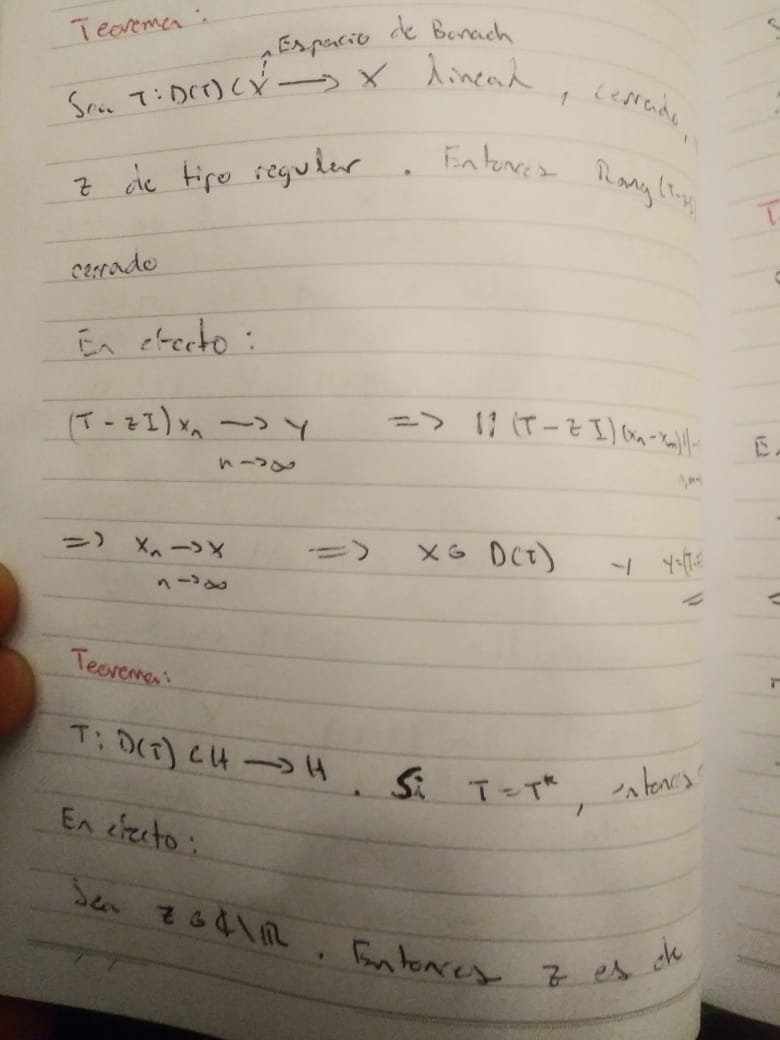 Teorema:
Espacio de Banach
Sea T: D(T) ⊂ X → X lineal, cerrado,
z de tipo regular. Entonces Rang (T-zI)
cerrado
En efecto:
(T - zI) xₙ → y ⇒ || (T - zI)(xₙ - xₘ) || →
n → ∞
⇒ xₙ → x ⇒ x ∈ D(T) y y = (T-
n → ∞
Teorema:
T: D(T) ⊂ H → H. Si T = T*, entonces
En efecto:
Sea z ∈ ℂ \ ℝ. Entonces z es de